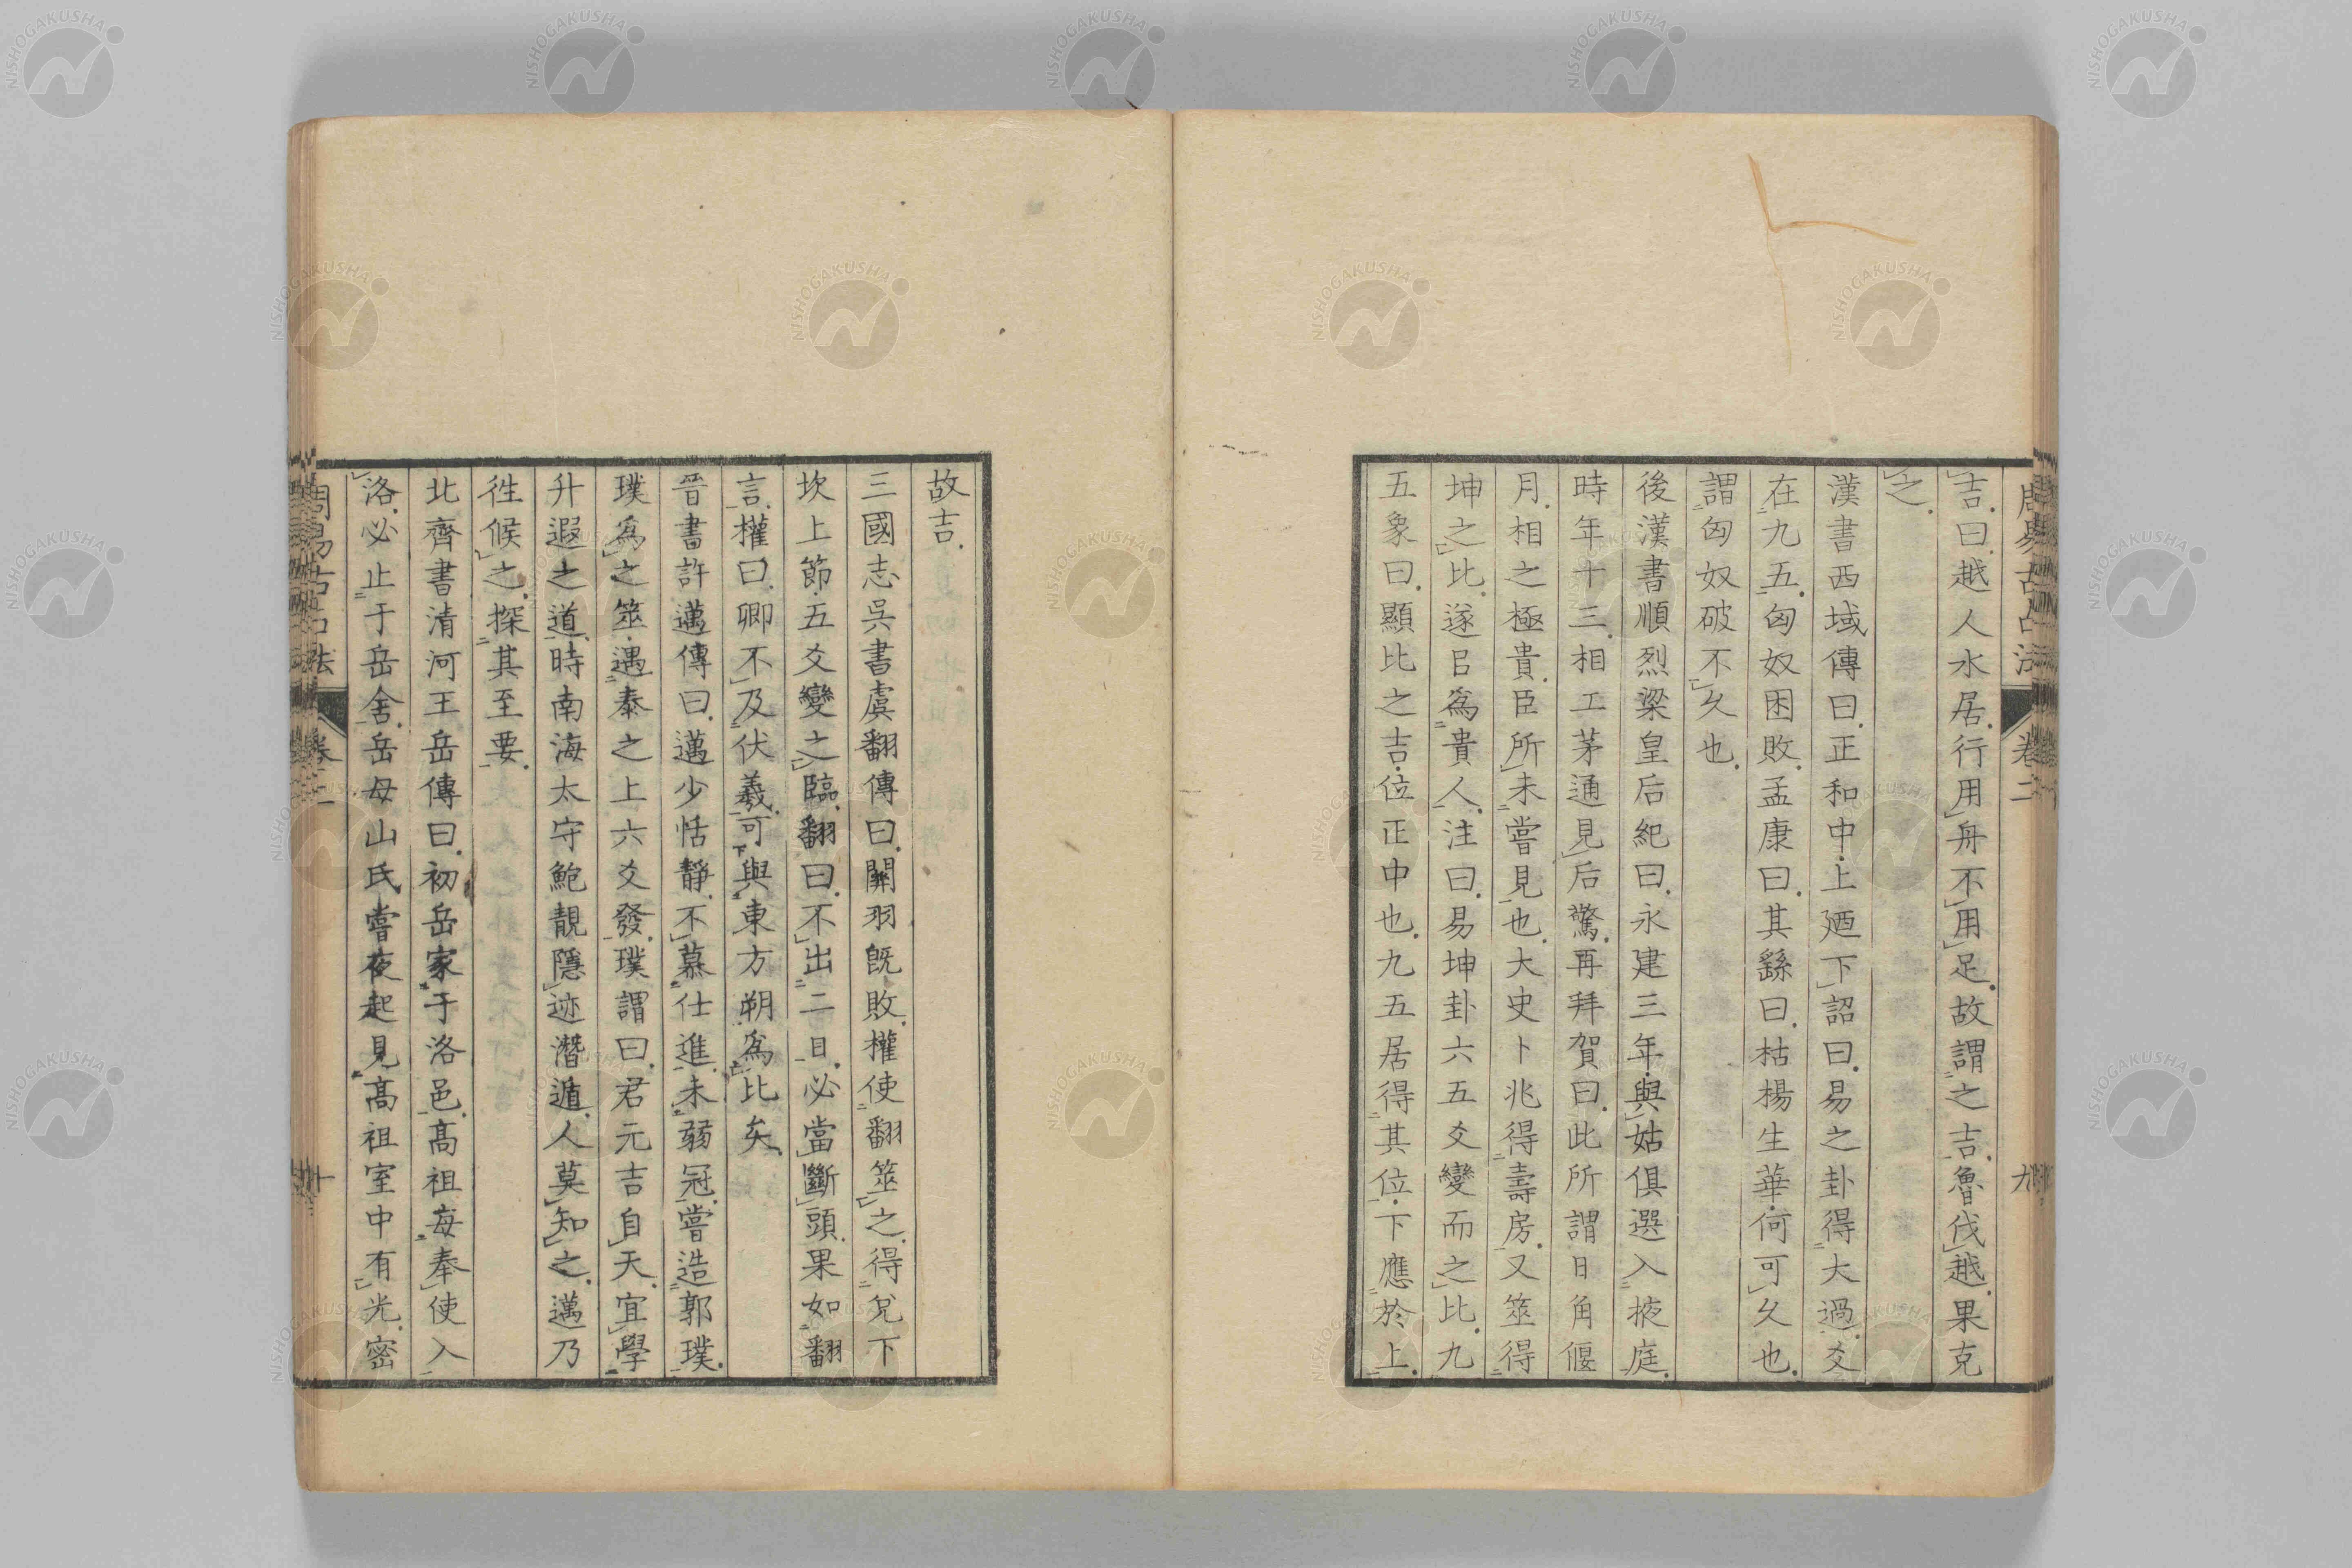 吉曰越人水居行用舟不用足故謂之吉魯伐越果克
之
漢書西域傳曰正和中上廼下詔曰易之卦得大過爻
在九五匈奴困敗孟康曰其繇曰枯楊生華何可久也
謂匈奴破不久也
後漢書順烈梁皇后紀曰永建三年與姑俱選入掖庭
時年十三相工茅通見后驚再拜賀曰此所謂日角偃
月相之極貴臣所未嘗見也大史卜兆得壽房又筮得
坤之比遂㠯為貴人注曰易坤卦六五爻變而之比九
五象曰顯比之吉位正中也九五居得其位下應於上
故吉
三國志吳書虞翻傳曰關羽既敗權使翻筮之得兌下
坎上節五爻變之臨翻曰不出二日必當斷頭果如翻
言權曰卿不及伏羲可與東方朔為比矣
晉書許邁傳曰邁少恬靜不慕仕進未弱冠嘗造郭璞
璞為之筮遇泰之上六爻發璞謂曰君元吉自天宜學
升遐之道時南海太守鮑靚隱迹潛遁人莫知之邁乃
徃候之探其至要
北齊書清河王岳傳曰初岳家于洛邑高祖每奉使入
洛必止于岳舍岳母山氏嘗夜起見高祖室中有光密
周易古占法 卷二 九
周易古占法 卷二 十
NISHOGAKUSHA